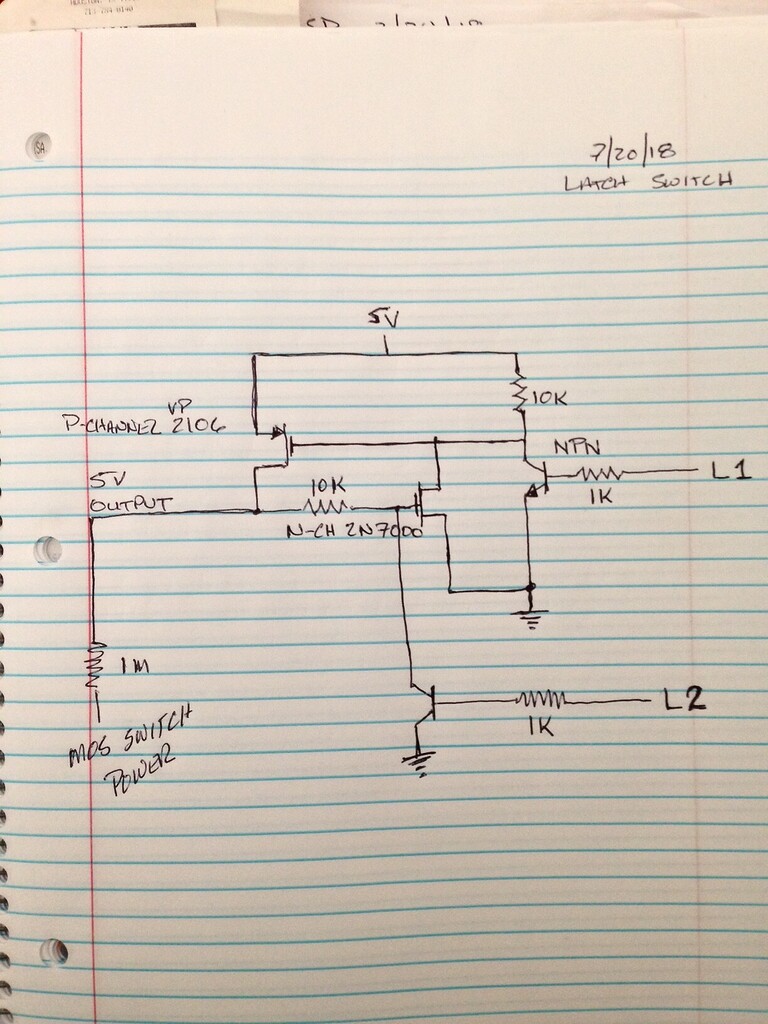 7/20/18
LATCH SWITCH
5V
10K
VP
P-CHANNEL 2106
NPN
L1
1K
5V
OUTPUT
10K
N-CH 2N7000
1M
L2
1K
MOS SWITCH
POWER
SA